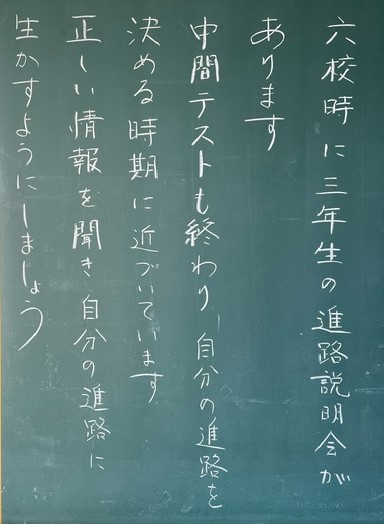 六校時に三年生の進路説明会が
あります
中間テストも終わり 自分の進路を
決める時期に近づいています
正しい情報を聞き 自分の進路に
生かすようにしましょう